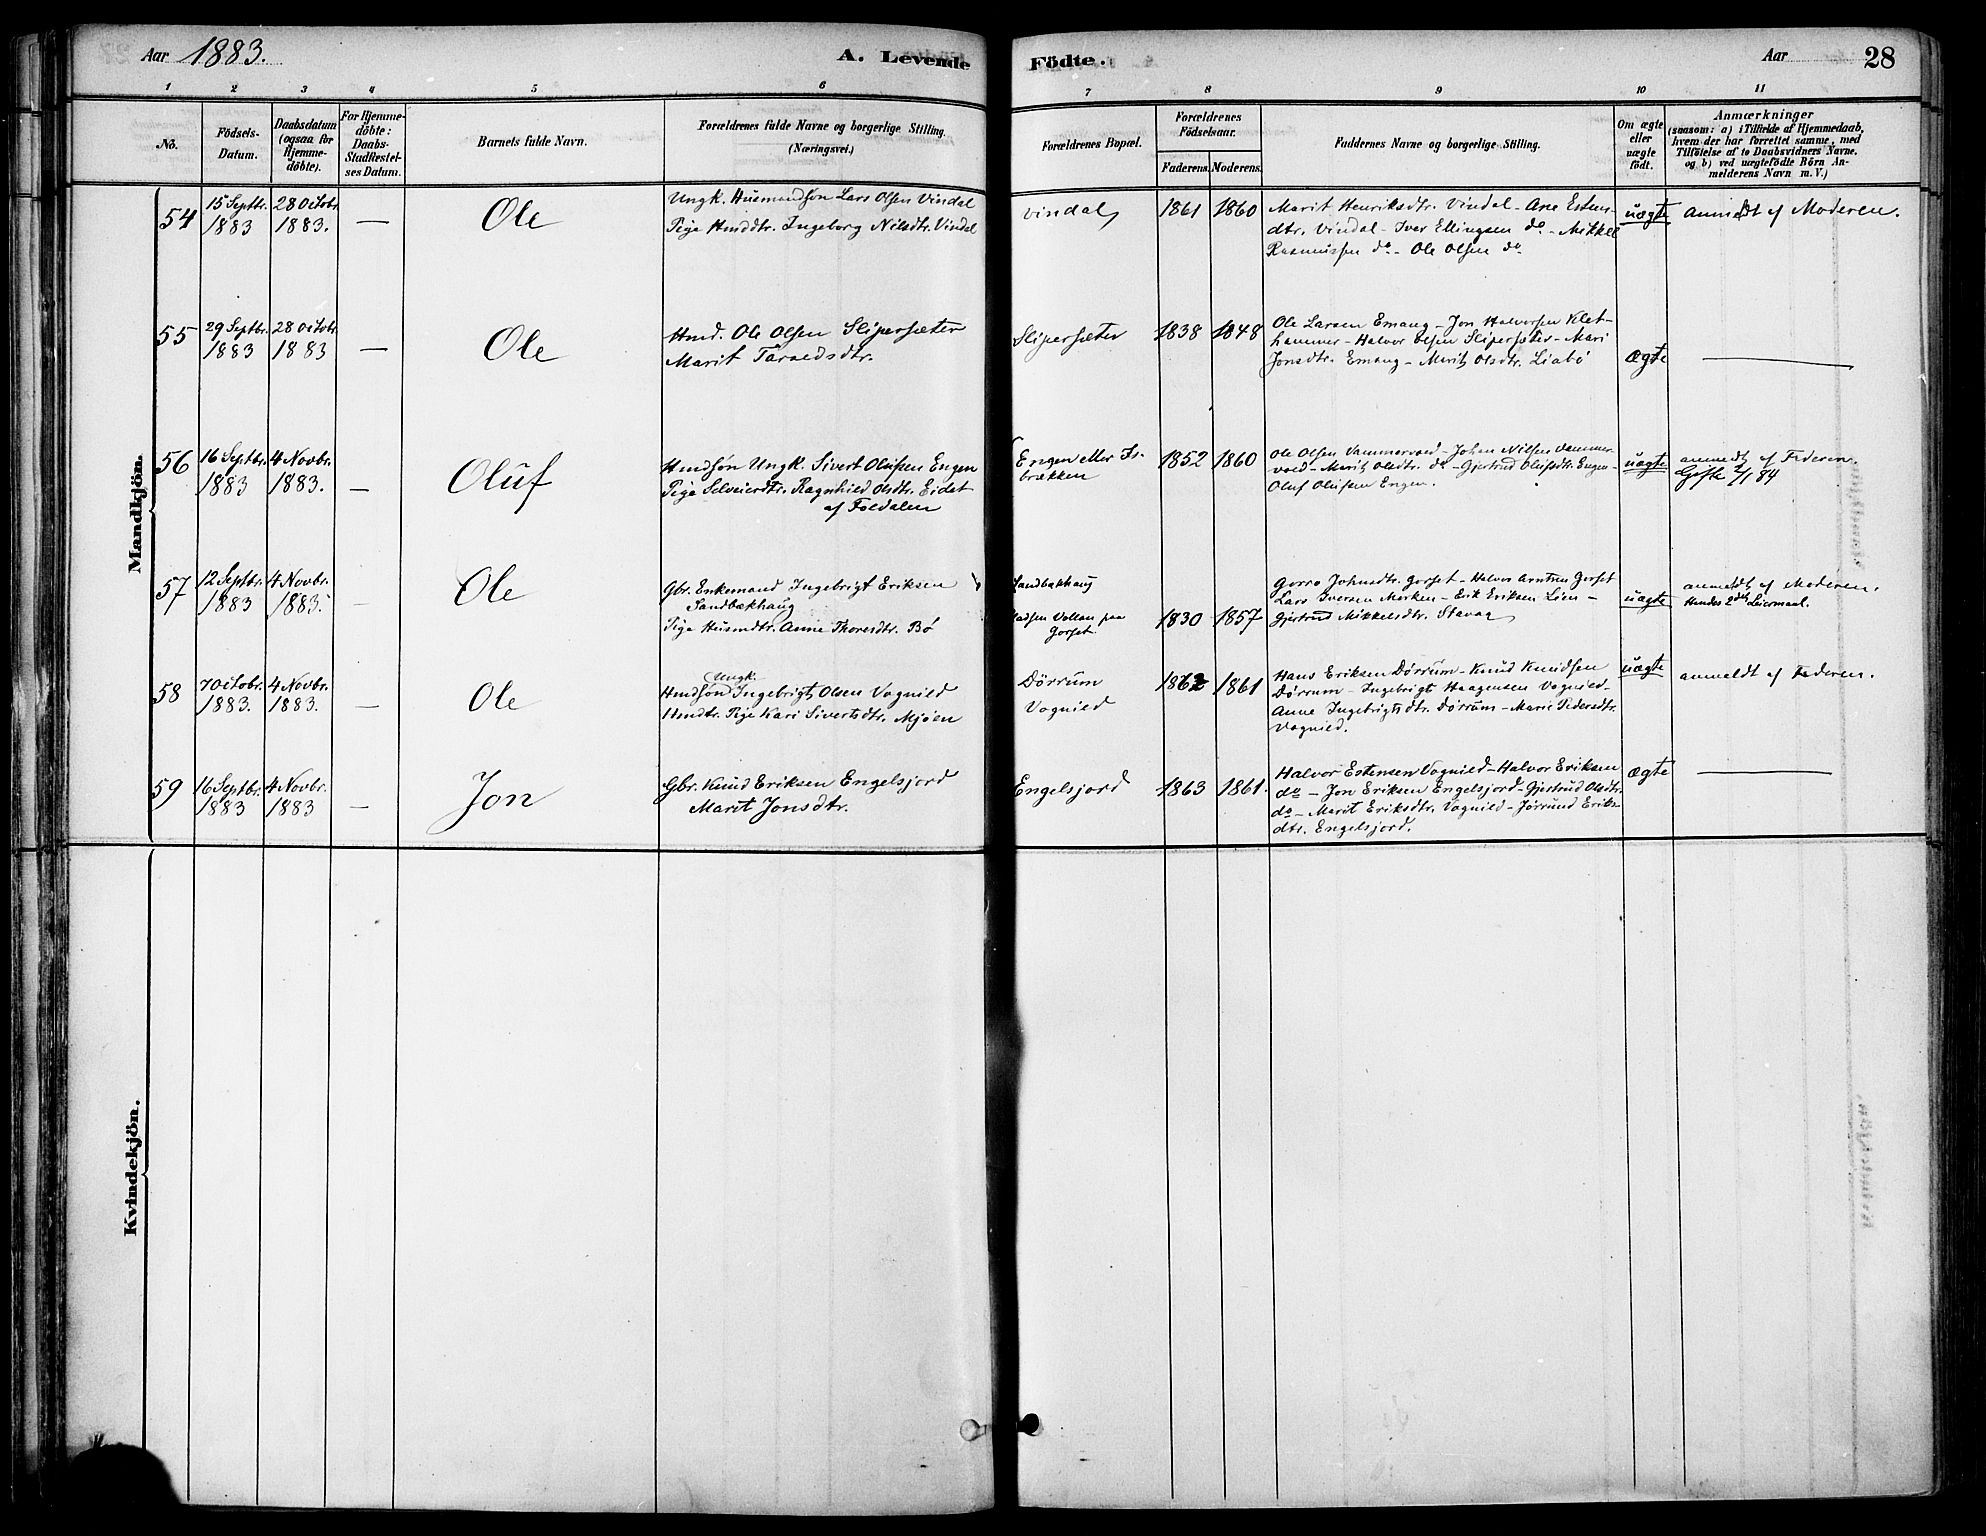 Aar 1883.
A. Levende
Födte.
Aar
28
1
2
3
4
5
6
7
8
9
10
11
No.
Födsels-
Datum.
Daabsdatum
(ogsaa for
Hjemme-
döbte).
For Hjemme-
döbte:
Daabs-
Stadfæstel-
ses Datum.
Barnets fulde Navn.
Forældrenes fulde Navne og borgerlige Stilling.
(Næringsvei.)
Forældrenes Bopæl.
Forældrenes
Födselsaar.
Faderens.
Moderens.
Faddernes Navne og borgerlige Stilling.
Om ægte
eller
uægte
født.
Anmærkninger
(saasom: a) i Tilfælde af Hjemmedaab,
hvem der har forrettet samme, med
Tilföielse af to Daabsvidners Navne.
og b) ved uægtefödte Börn An-
melderens Navn m. V.)
Mandkjön.
54
15 Septbr.
1883
28 Octobr.
1883.
—
Ole
Ungk. Husmandsøn Lars Olsen Vindal
Pige Hmddtr. Ingeborg Nilsdtr. Vindal
Vindal
1861
1860
Marit Henriksdtr. Vindal - Ane Estens-
dtr. Vindal - Iver Ellingsen do - Mikkel
Rasmussen do - Ole Olsen do
uægte
anmeldt af Moderen.
55
29 Septbr.
1883
28 Octobr.
1883
—
Ole
Hmd. Ole Olsen Slipersæter
Marit Taraldsdtr.
Slipersæter
1838
1848
Ole Larsen Emaug - Jon Halvorsen Klet-
hammer - Halvor Olsen Slipersæter - Mari
Jonsdtr. Emaug - Marit Olsdtr. Liabø
ægte
—
56
16 Septbr.
1883
4 Novbr.
1883.
—
Oluf
Hmdsøn Ungk. Sivert Olufsen Engen
Pige Selveierdtr. Ragnhild Olsdtr. Eidet
af Foldalen
Engen eller Is-
brækken
1852
1860
Ole Olsen Vammervold - Johan Nilsen Vammer-
vold - Marit Olsdtr. do - Gjertrud Olufsdtr. Engen -
Oluf Olufsen Engen.
uægte
anmeldt af Faderen.
Gifte 2/1 84
57
12 Septbr.
1883
4 Novbr.
1883.
—
Ole
Gbr. Enkemand Ingebrigt Eriksen
Sandbækhaug
Pige Husmdtr. Anne Thoresdtr. Bø
Sandbækhaug
Pladsen Vollan paa
Gorset
1830
1857
Gorro Johnsdtr. Gorset - Halvor Arntsen Gorset
Lars Iversen Merken - Erik Eriksen Lien -
Gjertrud Mikkelsdtr. Stavaa
uægte
anmeldt af Moderen.
Hendes 2det Leiermaal.
58
7 Octobr.
1883.
4 Novbr.
1883.
—
Ole
Ungk.
Hmdsøn Ingebrigt Olsen Vognild
Hmdtr. Pige Kari Sivertsdtr. Mjøen
Dørrum
Vognild
1862
1861
Hans Eriksen Dørrum - Knud Knudsen
Dørrum - Ingebrigt Haagensen Vognild -
Anne Ingebrigtsdtr. Dørrum - Marie Pedersdtr.
Vognild.
uægte
anmeldt af Faderen.
59
16 Septbr.
1883
4 Novbr.
1883
—
Jon
Gbr. Knud Eriksen Engelsjord
Marit Jonsdtr.
Engelsjord
1863
1861.
Halvor Estensen Vognild - Halvor Eriksen
do - Jon Eriksen Engelsjord - Gjertrud Olsdtr.
do - Marit Eriksdtr. Vognild - Jørund Eriks-
dtr. Engelsjord.
ægte
—
Kvindekjön.